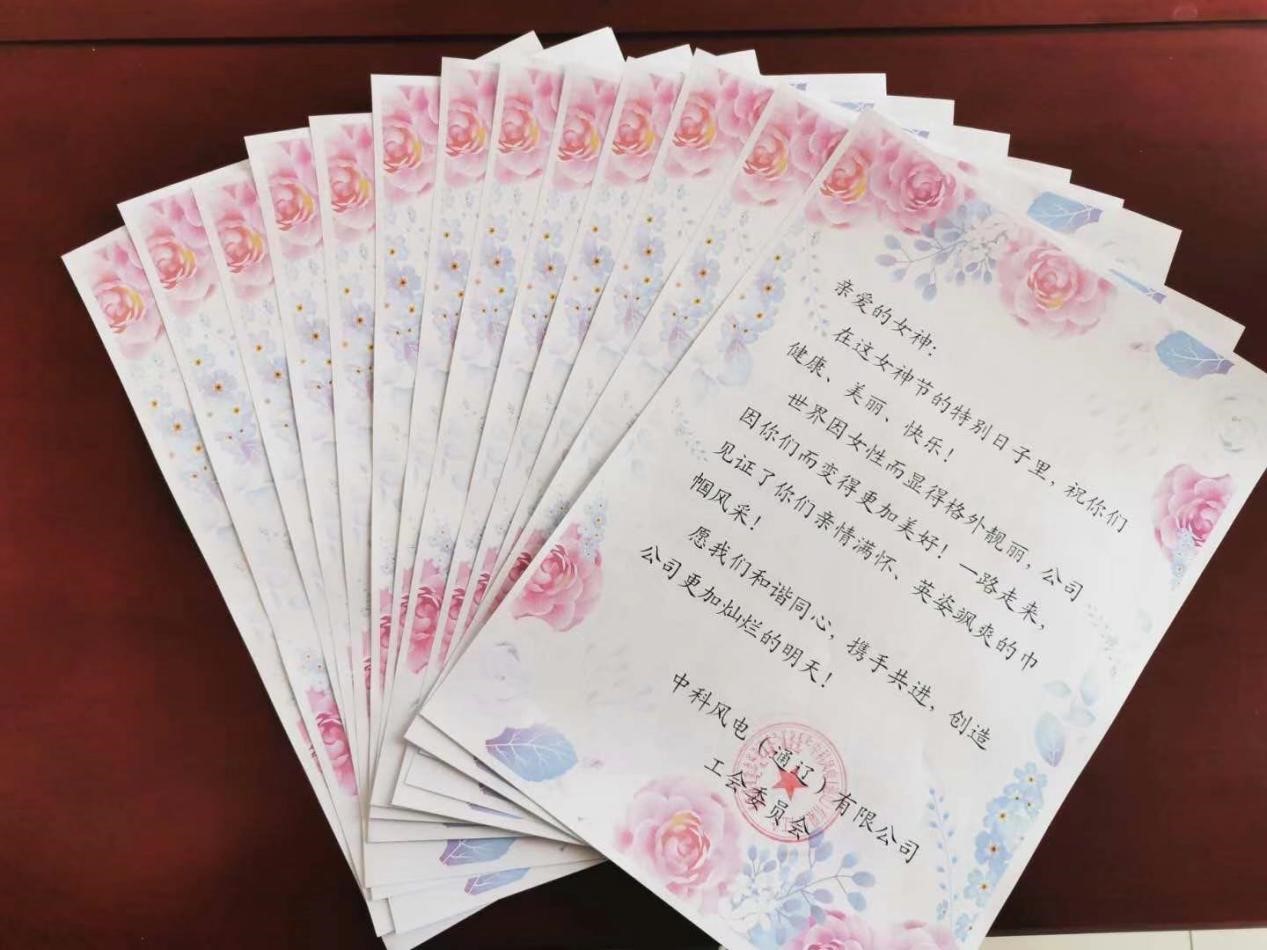 亲爱的女神：
在这女神节的特别日子里，祝你们
健康、美丽、快乐！
世界因女性而显得格外靓丽，公司
因你们而变得更加美好！一路走来，
见证了你们亲情满怀、英姿飒爽的巾
帼风采！
愿我们和谐同心，携手共进，创造
公司更加灿烂的明天！
中科风电（通辽）有限公司
工会委员会